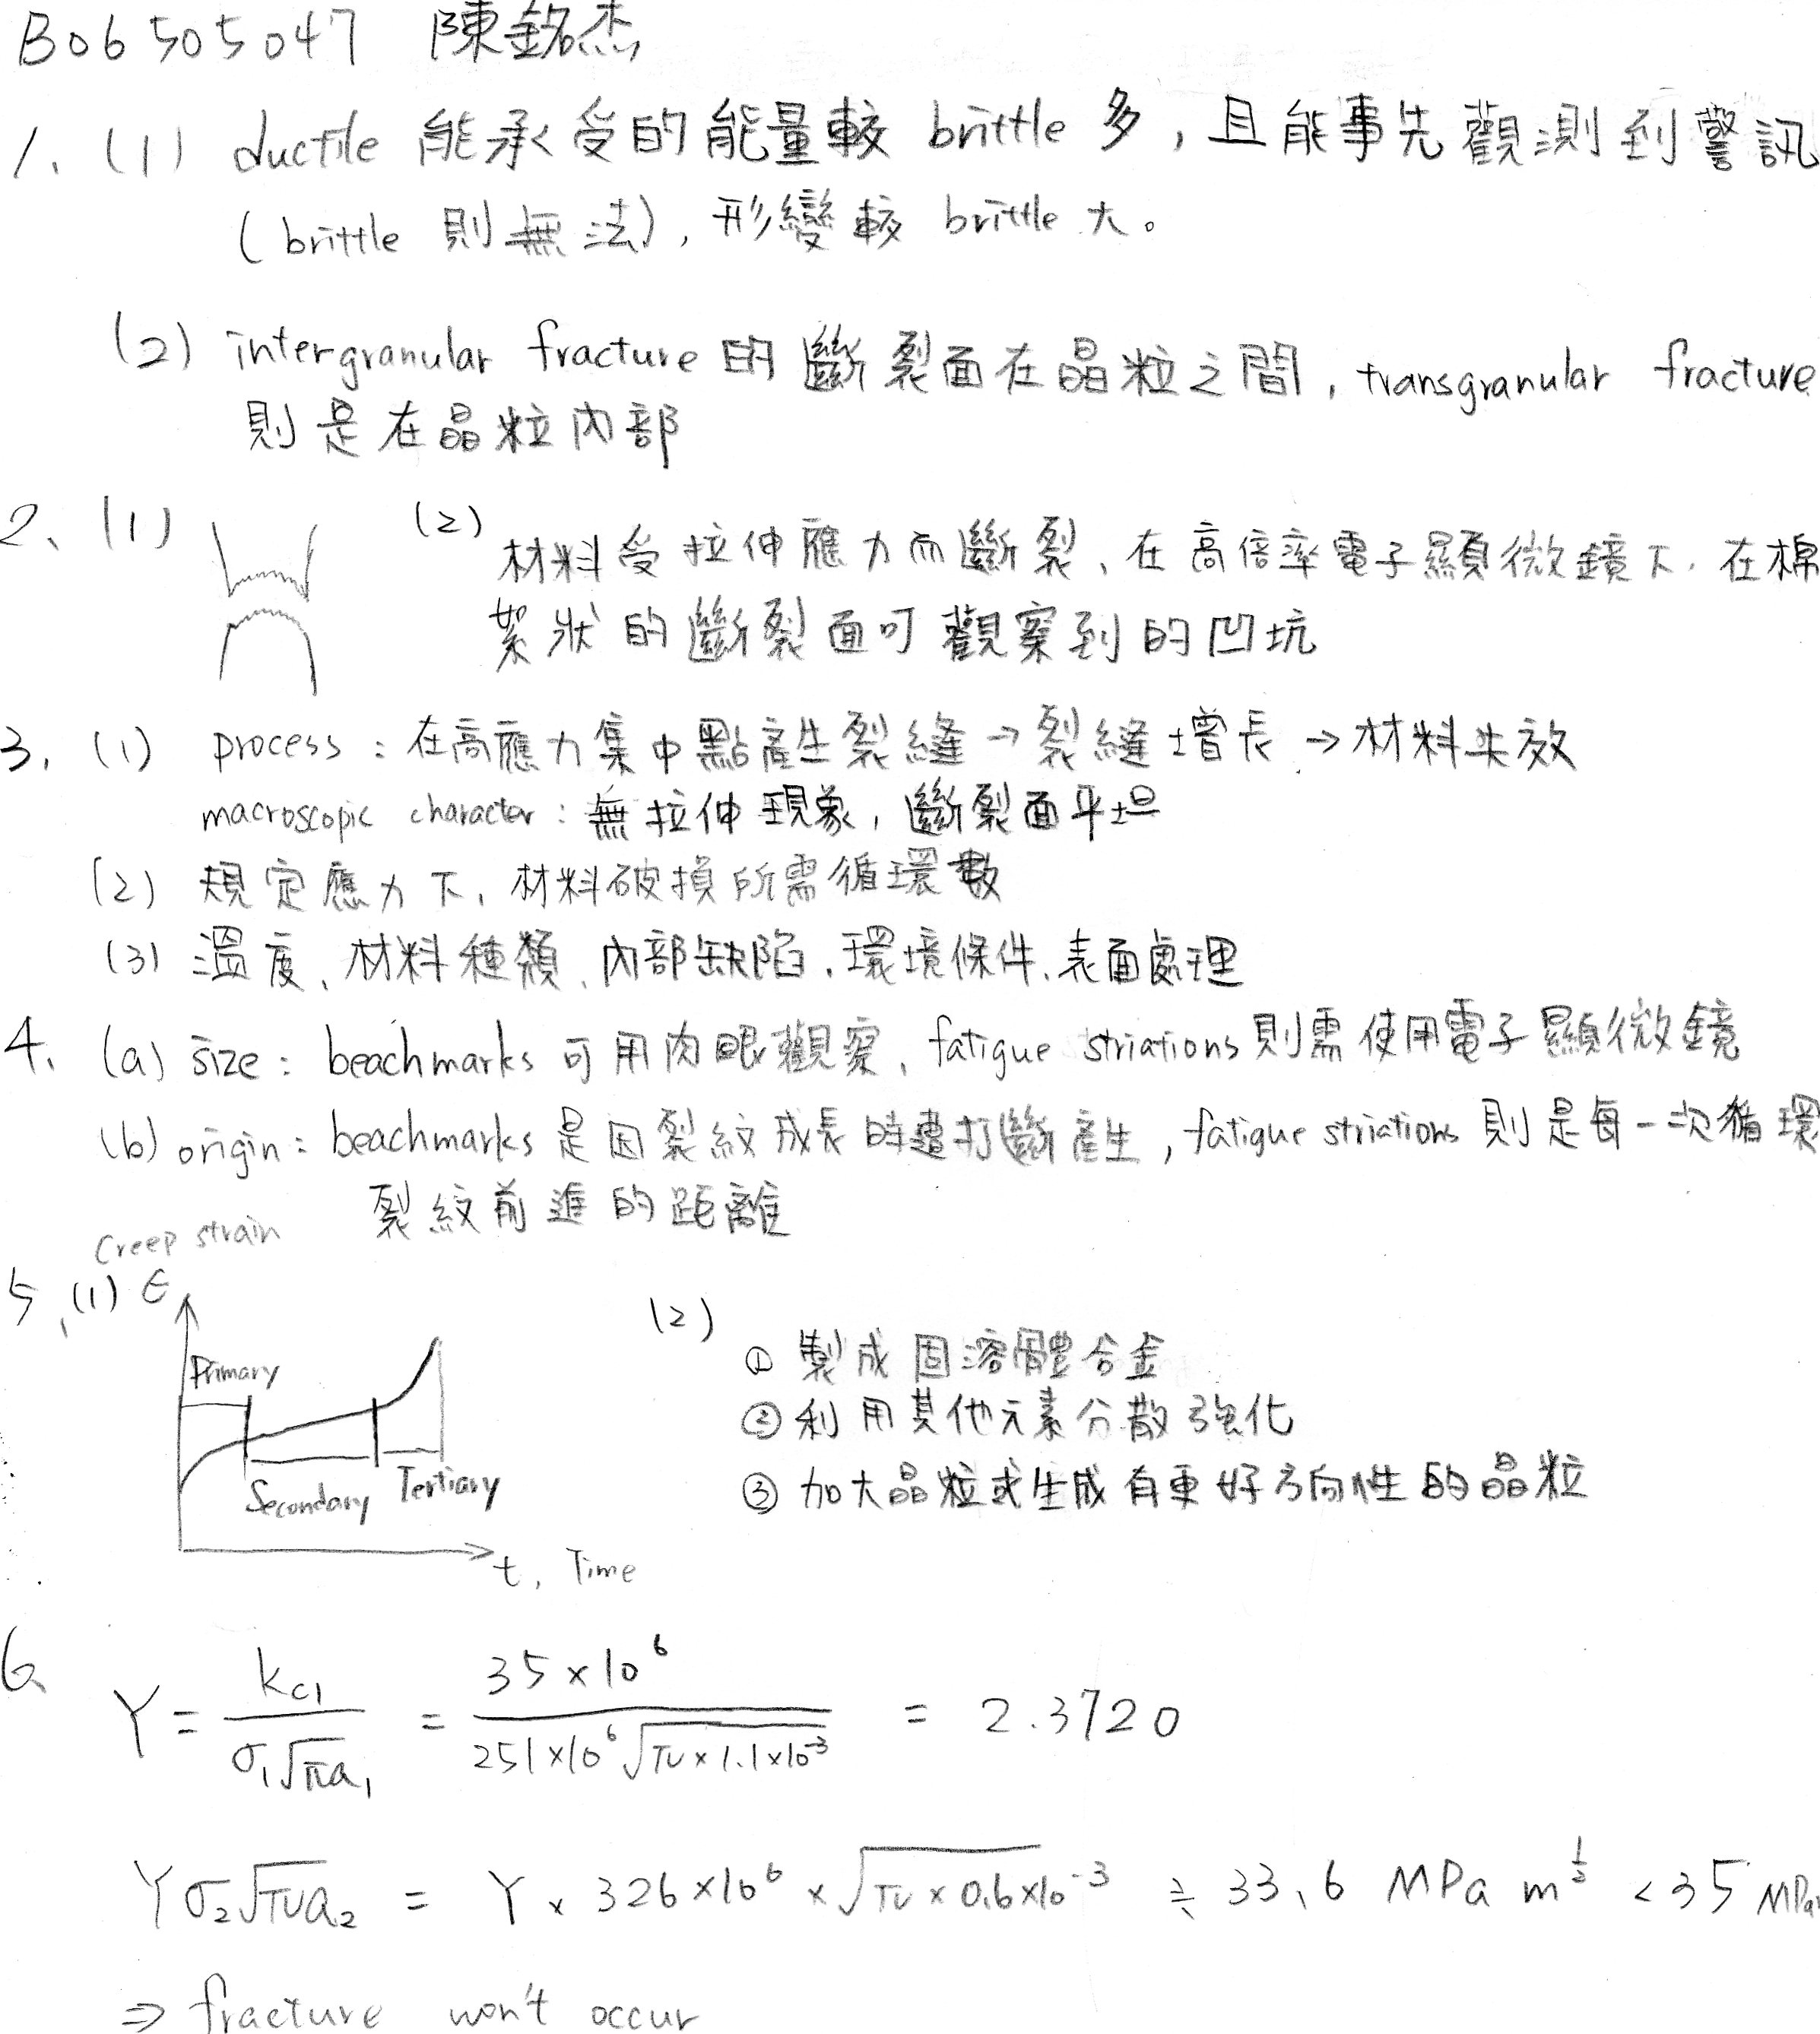 B06505047 陳銘杰
1、(1) ductile 能承受的能量較 brittle 多，且能事先觀測到警訊
(brittle 則無法)，形變較 brittle 大。
(2) intergranular fracture 的斷裂面在晶粒之間，transgranular fracture
則是在晶粒內部
2、(1)
(2) 材料受拉伸應力而斷裂、在高倍率電子顯微鏡下，在棉
絮狀的斷裂面可觀察到的凹坑
3、(1) process：在高應力集中點產生裂縫→裂縫增長→材料失效
macroscopic character：無拉伸現象，斷裂面平坦
(2) 規定應力下，材料破損所需循環數
(3) 溫度、材料種類、內部缺陷、環境條件、表面處理
4、(a) size：beachmarks 可用肉眼觀察，fatigue striations 則需使用電子顯微鏡
(b) origin：beachmarks 是因裂紋成長時遭打斷產生，fatigue striations 則是每一次循環
裂紋前進的距離
5、(1) creep strain
ϵ
Primary
Secondary
Tertiary
t, Time
(2)
① 製成固溶體合金
② 利用其他元素分散強化
③ 加大晶粒或生成有更好方向性的晶粒
6、Y = kc1 / σ1√πa1 = 35×10^6 / 251×10^6√π×1.1×10^-3 = 2.3720
Yσ2√πa2 = Y × 326×10^6 × √π×0.6×10^-3 ≒ 33.6 MPa m^1/2 < 35 MPa
⇒ fracture won't occur